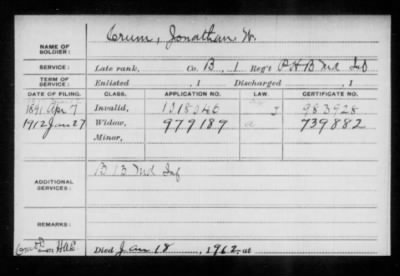 Crum, Jonathan W.
NAME OF SOLDIER:
SERVICE: Late rank, Co. B, 1 Reg't P.H.B. Md Inf
TERM OF SERVICE: Enlisted , 1 Discharged , 1
DATE OF FILING. CLASS. APPLICATION NO. LAW. CERTIFICATE NO.
1891 Apr 7 Invalid, J 983928
1912 Jan 27 Widow, 979189 a 739882
Minor,
ADDITIONAL SERVICES: B 13 Md Inf
REMARKS:
Died Jan 18, 1912, at